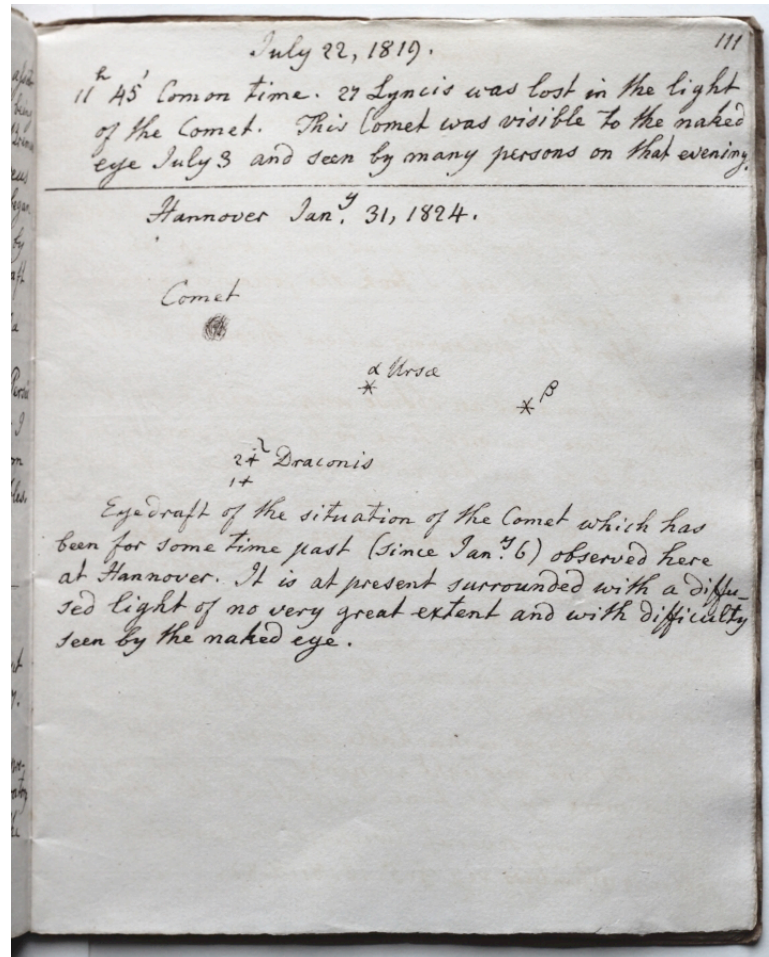 111
July 22, 1819.
11h 45' Comon time. 27 Lyncis was lost in the light
of the Comet. This Comet was visible to the naked
eye July 3 and seen by many persons on that evening.
Hannover Jany. 31, 1824.
Comet
α Ursæ
β
2+ Draconis
1+
Eyedraft of the situation of the Comet which has
been for some time past (since Jany. 6) observed here
at Hannover. It is at present surrounded with a diffu-
sed light of no very great extent and with difficulty
seen by the naked eye.